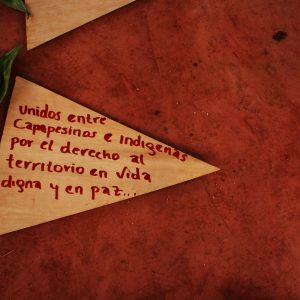 unidos entre
Capapesinos e indigenas
por el derecho al
territorio en vida
digna y en paz...